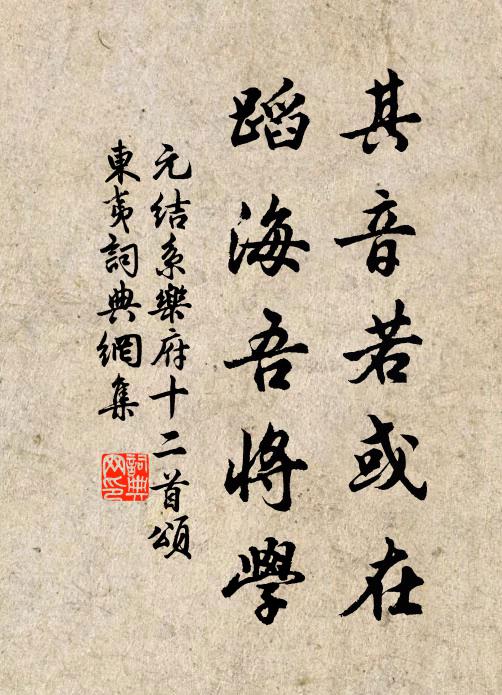 其音若或在
蹈海吾將學
元結系樂府十二首頌
東夷詞典網集
詞典
网印